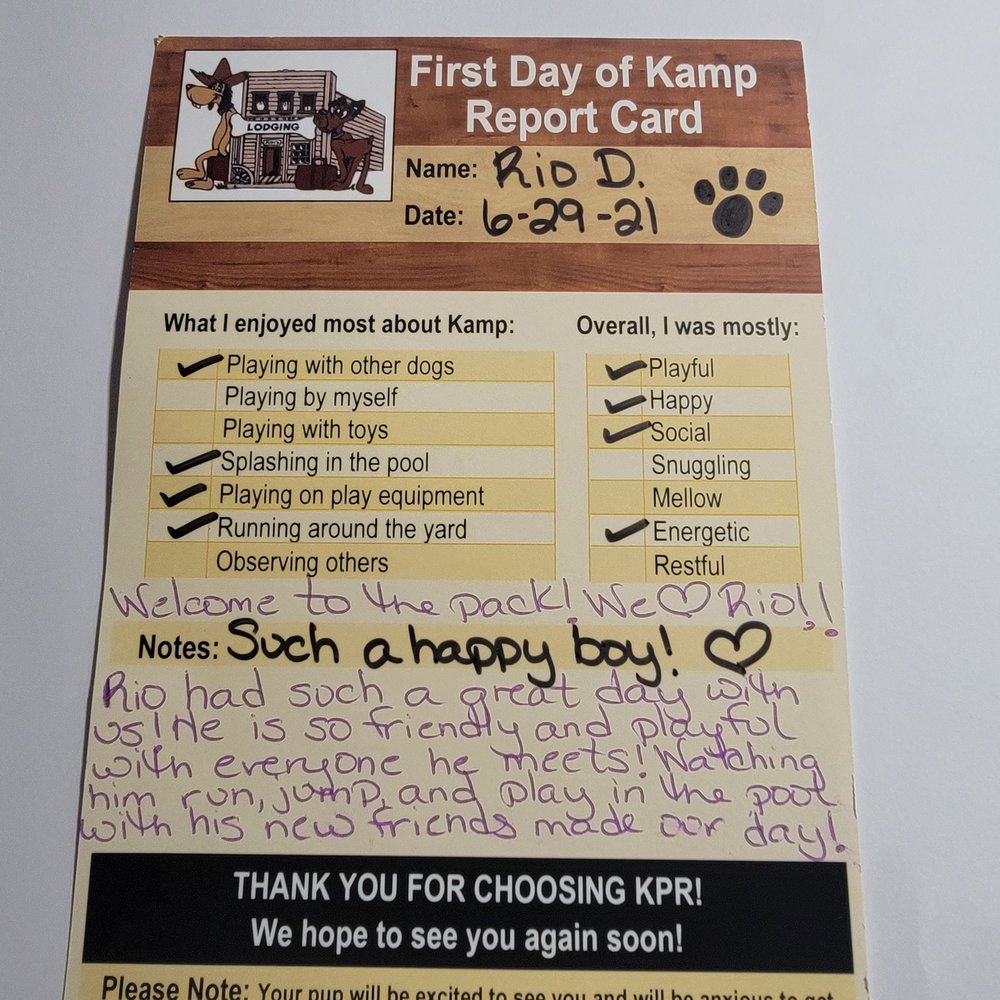 LODGING
First Day of Kamp
Report Card
Name: Rio D.
Date: 6-29-21
What I enjoyed most about Kamp:
✓ Playing with other dogs
Playing by myself
Playing with toys
✓ Splashing in the pool
✓ Playing on play equipment
✓ Running around the yard
Observing others
Overall, I was mostly:
✓ Playful
✓ Happy
✓ Social
Snuggling
Mellow
✓ Energetic
Restful
Welcome to the pack! We ♡ Rio!!
Notes: Such a happy boy! ♡
Rio had such a great day with
us! He is so friendly and playful
with everyone he meets! Watching
him run, jump, and play in the pool
with his new friends made our day!
THANK YOU FOR CHOOSING KPR!
We hope to see you again soon!
Please Note: Your pup will be excited to see you and will be anxious to get